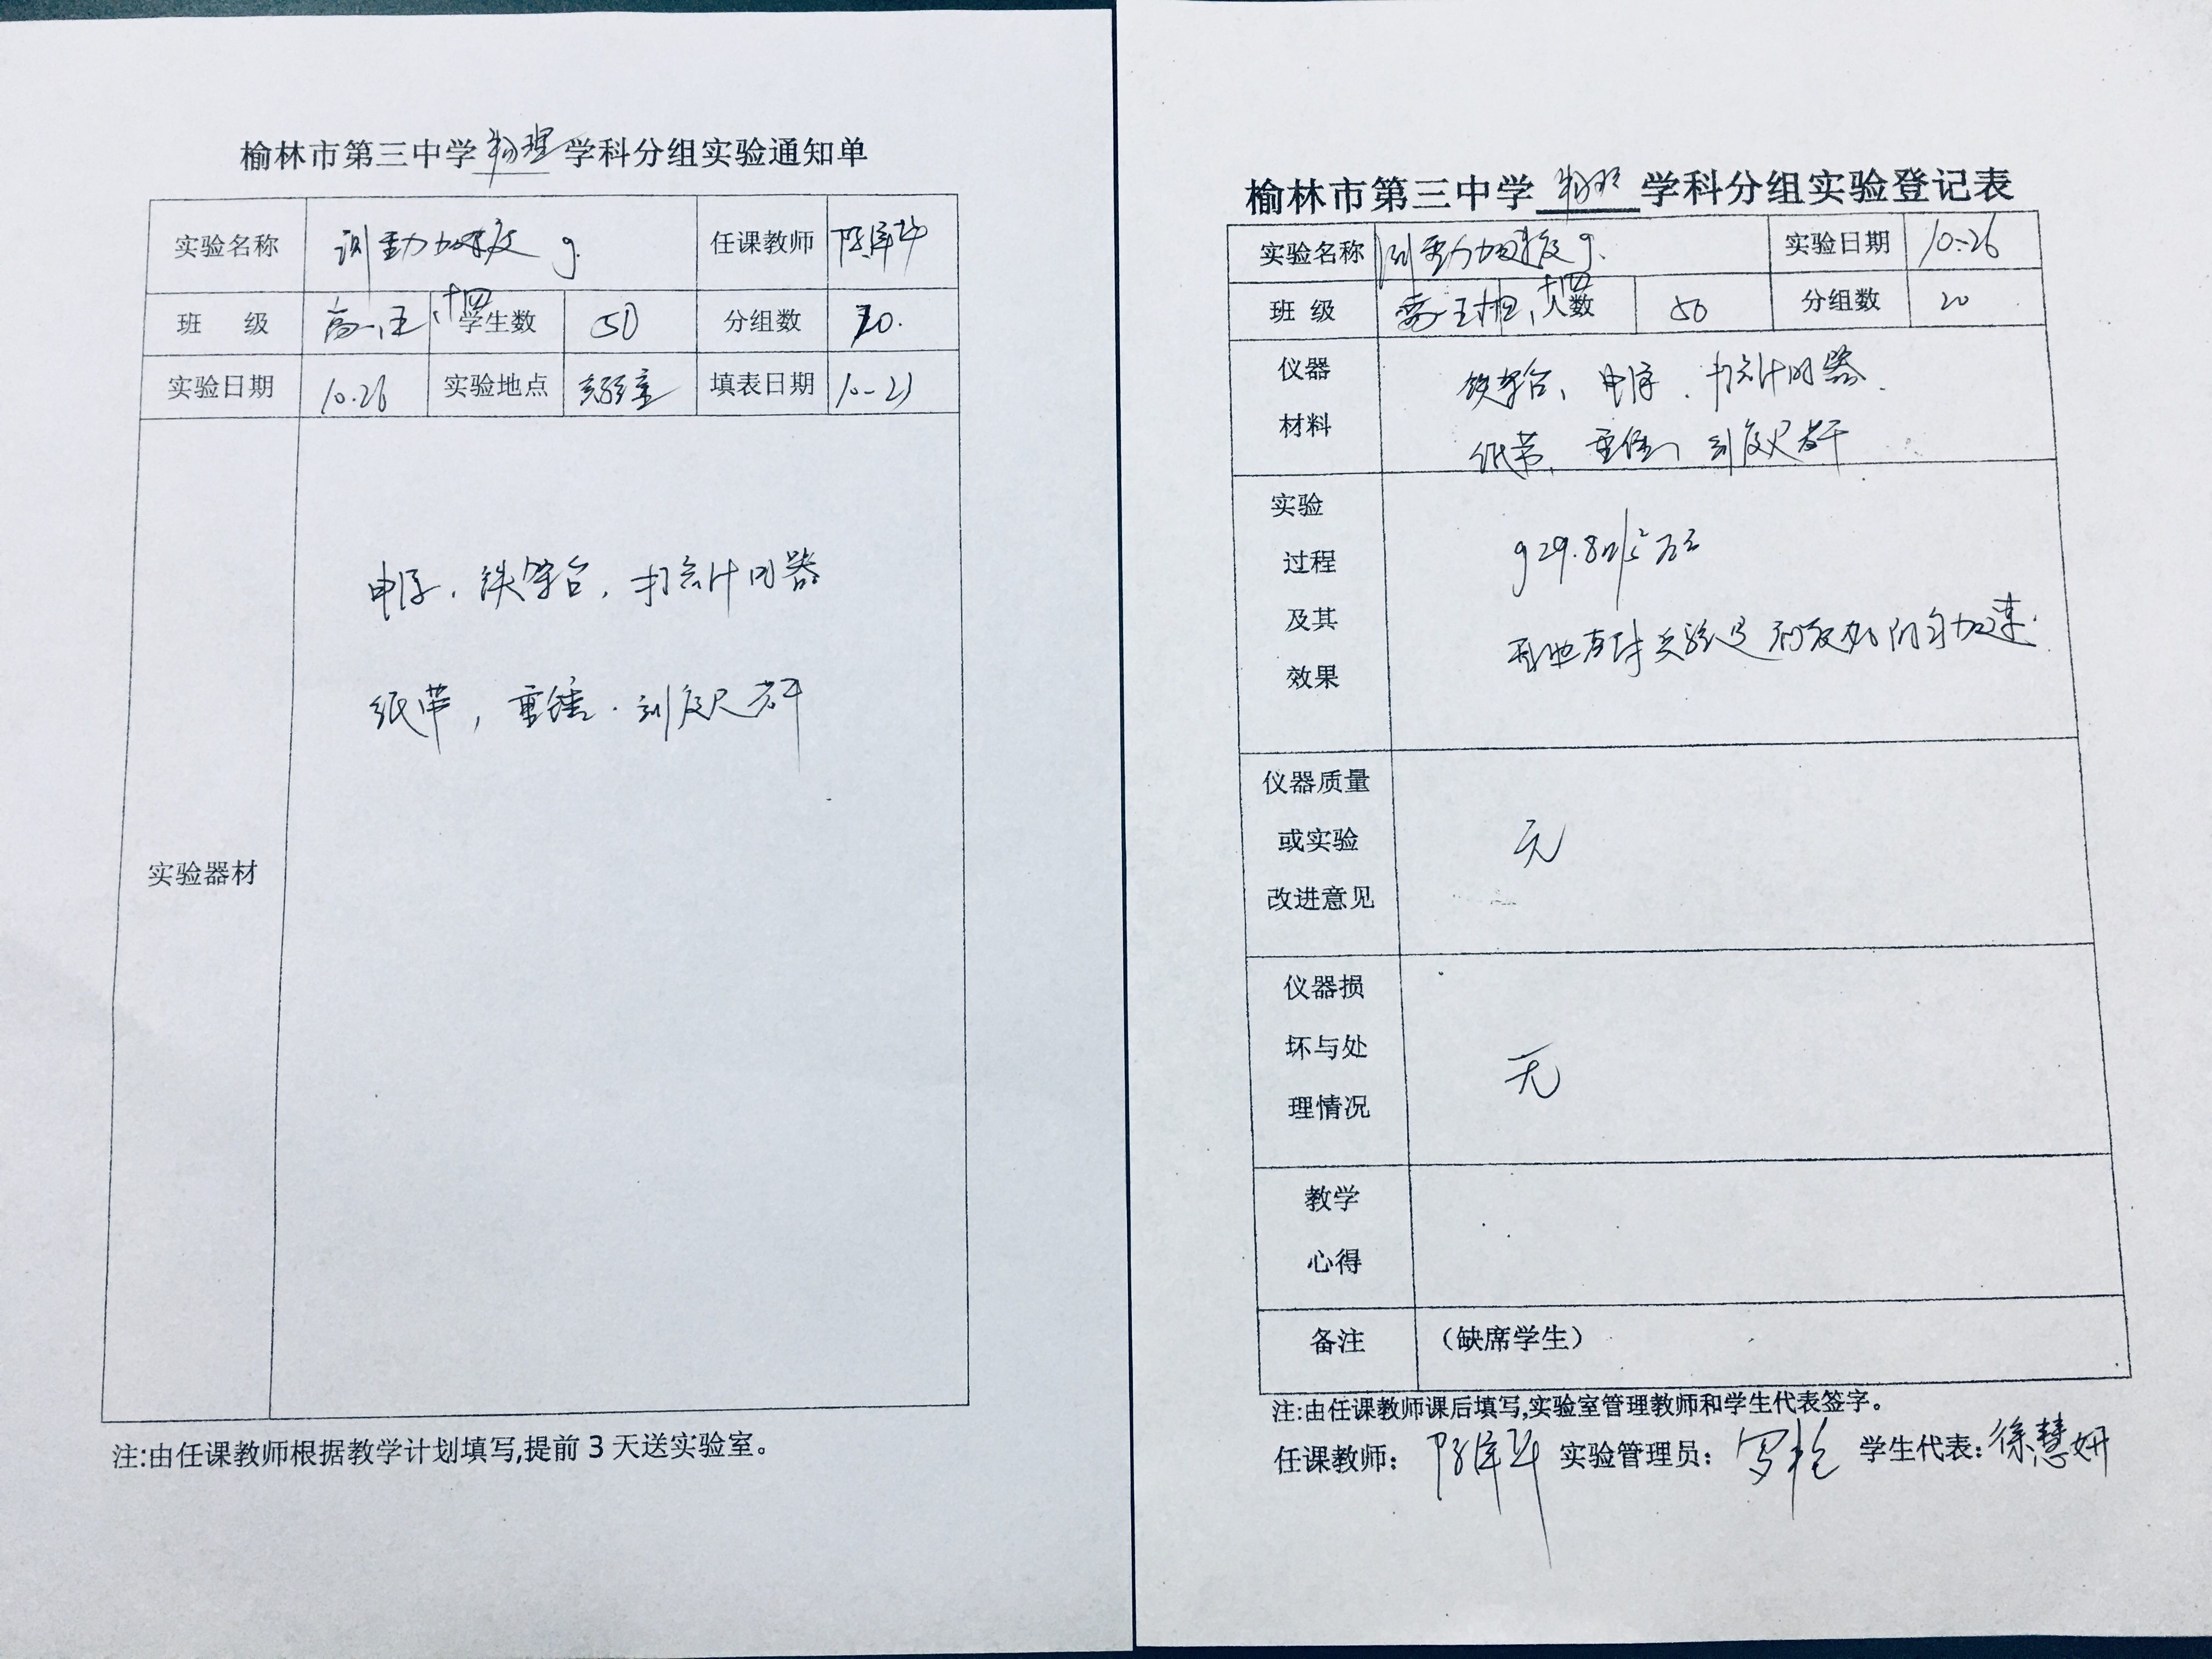 榆林市第三中学物理学科分组实验通知单
实验名称 测重力加速度 g. 任课教师
班 级 高一、五、十四 学生数 50 分组数 20.
实验日期 10.26 实验地点 实验室 填表日期 10-23
实验器材
电源.铁架台,打点计时器
纸带,重锤.刻度尺若干
注:由任课教师根据教学计划填写,提前3天送实验室。
榆林市第三中学物理学科分组实验登记表
实验名称 测重力加速度 g. 实验日期 10.26
班 级 十四 人数 50 分组数 20
仪器
材料
铁架台、电源.打点计时器.
纸带、重锤、刻度尺若干
实验
过程
及其
效果
g=9.8m/s²左右
仪器质量
或实验
改进意见
无
仪器损
坏与处
理情况
无
教学
心得
备注 (缺席学生)
注:由任课教师课后填写,实验室管理教师和学生代表签字。
任课教师: 实验管理员: 学生代表:徐慧妍